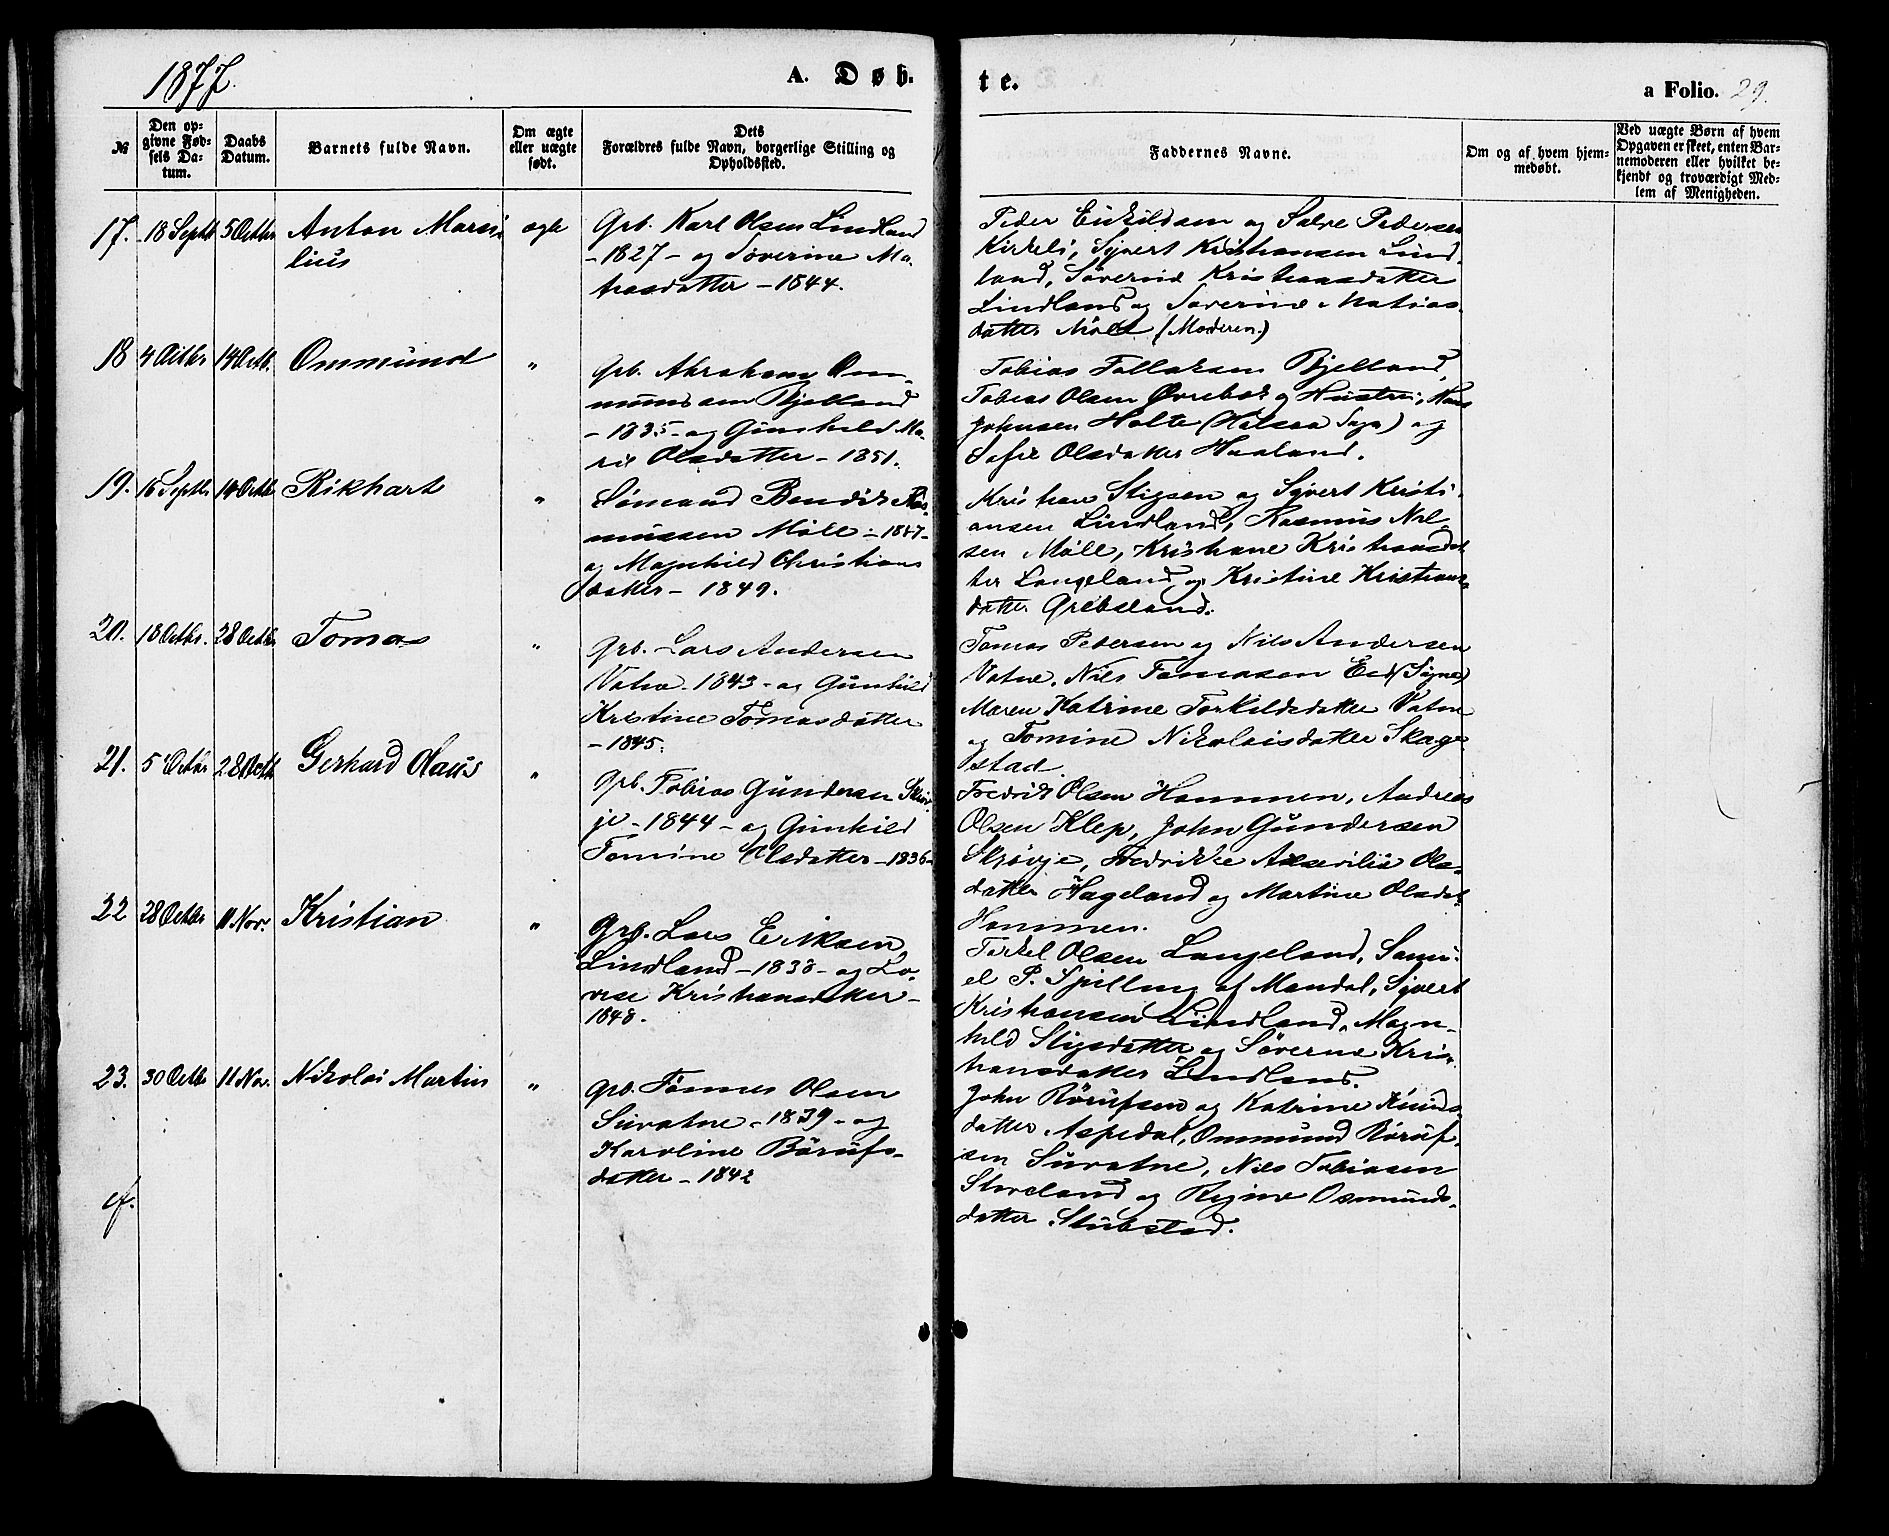 1877.
A. Døb-
te.
a Folio. 29.
№
Den op-
givne Fød-
sels Da-
tum.
Daabs
Datum.
Barnets fulde Navn.
Om ægte
eller uægte
født.
Dets
Forældres fulde Navn, borgerlige Stilling og
Opholdssted.
Faddernes Navne.
Om og af hvem hjem-
medøbt.
Ved uægte Børn af hvem
Opgaven er skeet, enten Bar-
nemoderen eller hvilket be-
kjendt og troværdigt Med-
lem af Menigheden.
17. 18 Septb 5 Octbr Anton Marsi-
lius
ægte
Grb. Karl Olsen Lindland
- 1827 - og Søverine Ma-
thiasdatter - 1844.
Peder Eickildsen og Salve Pedersen
Kirkeli, Syvert Kristiansen Lind-
land, Søverine Kristiansdatter
Lindland og Søverine Matias-
datter Møll (Moderen.)
18 4 Octbr 14 Octb. Ommund
"
Grb. Abraham Om-
mundsen Bjelland
- 1835 - og Gunhild Ma-
rie Olsdatter - 1851.
Tobias Tollaksen Bjelland,
Tobias Olsen Øvrebø og Hustru, Hans
Johnsen Holte (Halsaa Sogn) og
Sofie Olsdatter Haaland.
19. 16 Septbr 14 Octb Rikhart
"
Sømand Bendik Ras-
mussen Mølle - 1847 -
og Magnhild Christians
datter - 1849.
Kristian Stigsen og Syvert Kristi-
ansen Lindland, Rasmus Nil-
sen Mølle, Kristiane Kristiansdat-
ter Langeland og Kristine Kristians-
datter Grebsland.
20. 18 Octbr. 28 Octbr Tomas
"
Grb. Lars Andersen
Vatne. 1843 - og Gunhild
Kristine Tomasdatter
- 1845.
Tomas Pedersen og Nils Andersen
Vatne. Nils Tomasen Eed (Søgne)
Maren Katrine Torkildsdatter Vatne
og Tomine Nikolaisdatter Skage-
stad.
21. 5 Octbr 28 Octb Gerhard Olaus
"
Grb. Tobias Gundersen Skøv-
je - 1844 - og Gunhild
Tomine Olsdatter - 1836 -
Fredrik Olsen Hommen, Andreas
Olsen Klep, John Gundersen
Skøvje, Fredrikke Ols-
datter Hageland og Martine Olsdat.
Hommen.
22 28 Octbr 11 Nov. Kristian
"
Grb. Lars Eriksen
Lindland - 1838 - og Lo-
vise Kristiansdatter -
1848.
Tørkel Olsen Langeland, Samu-
el P. Spilling af Mandal, Syvert
Kristiansen Lindland, Magn-
hild Stigsdatter og Søverne Kris-
tiansdatter Lindland.
23. 30 Octb 11 Nov. Nikolai Martin
"
Grb. Tønnes Olsen
Suvatne - 1839 - og
Karoline Børufs-
datter - 1842
John Børufsen og Katrine Knuds-
datter Aspedal, Ommund Børuf-
sen Suvatne, Nils Tobiasen
Storeland og Regine Osmunds-
datter Stubstad.